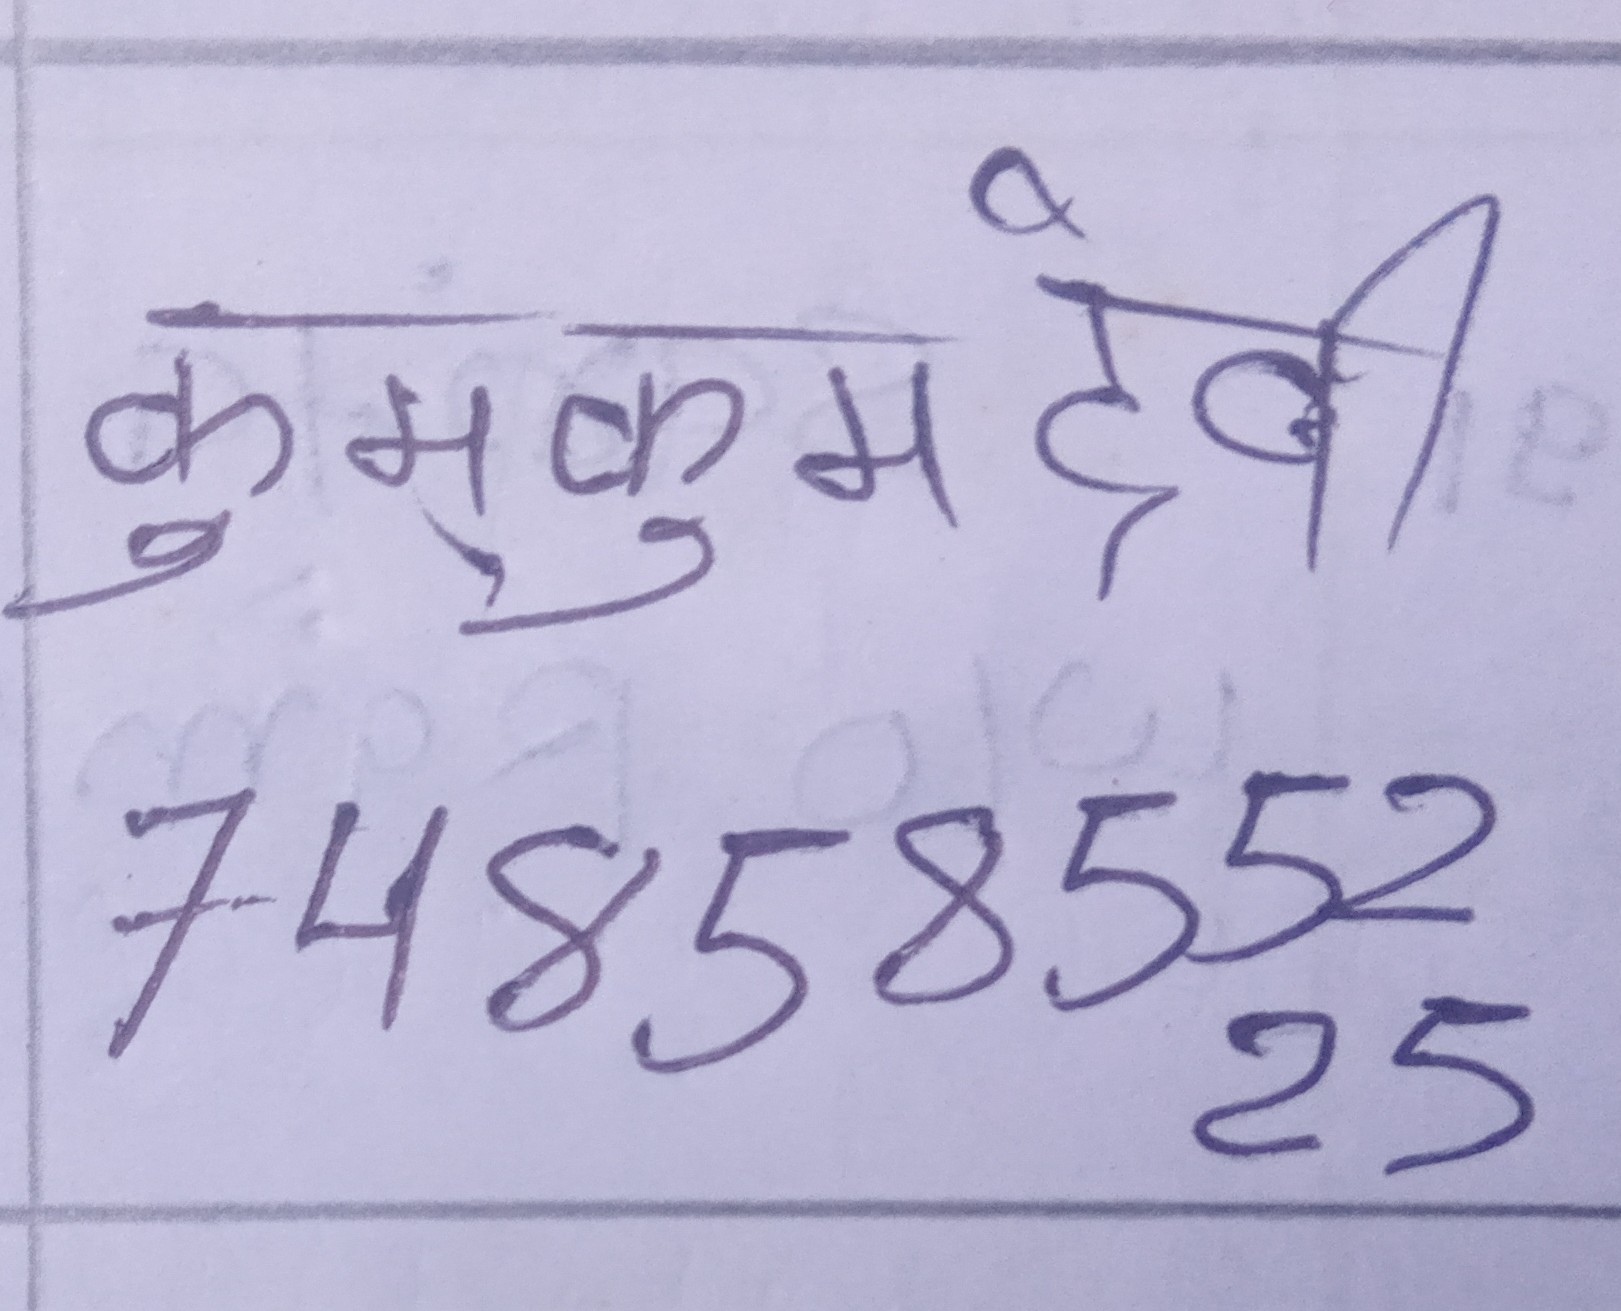 कुम्कुम देवी
74858552
25